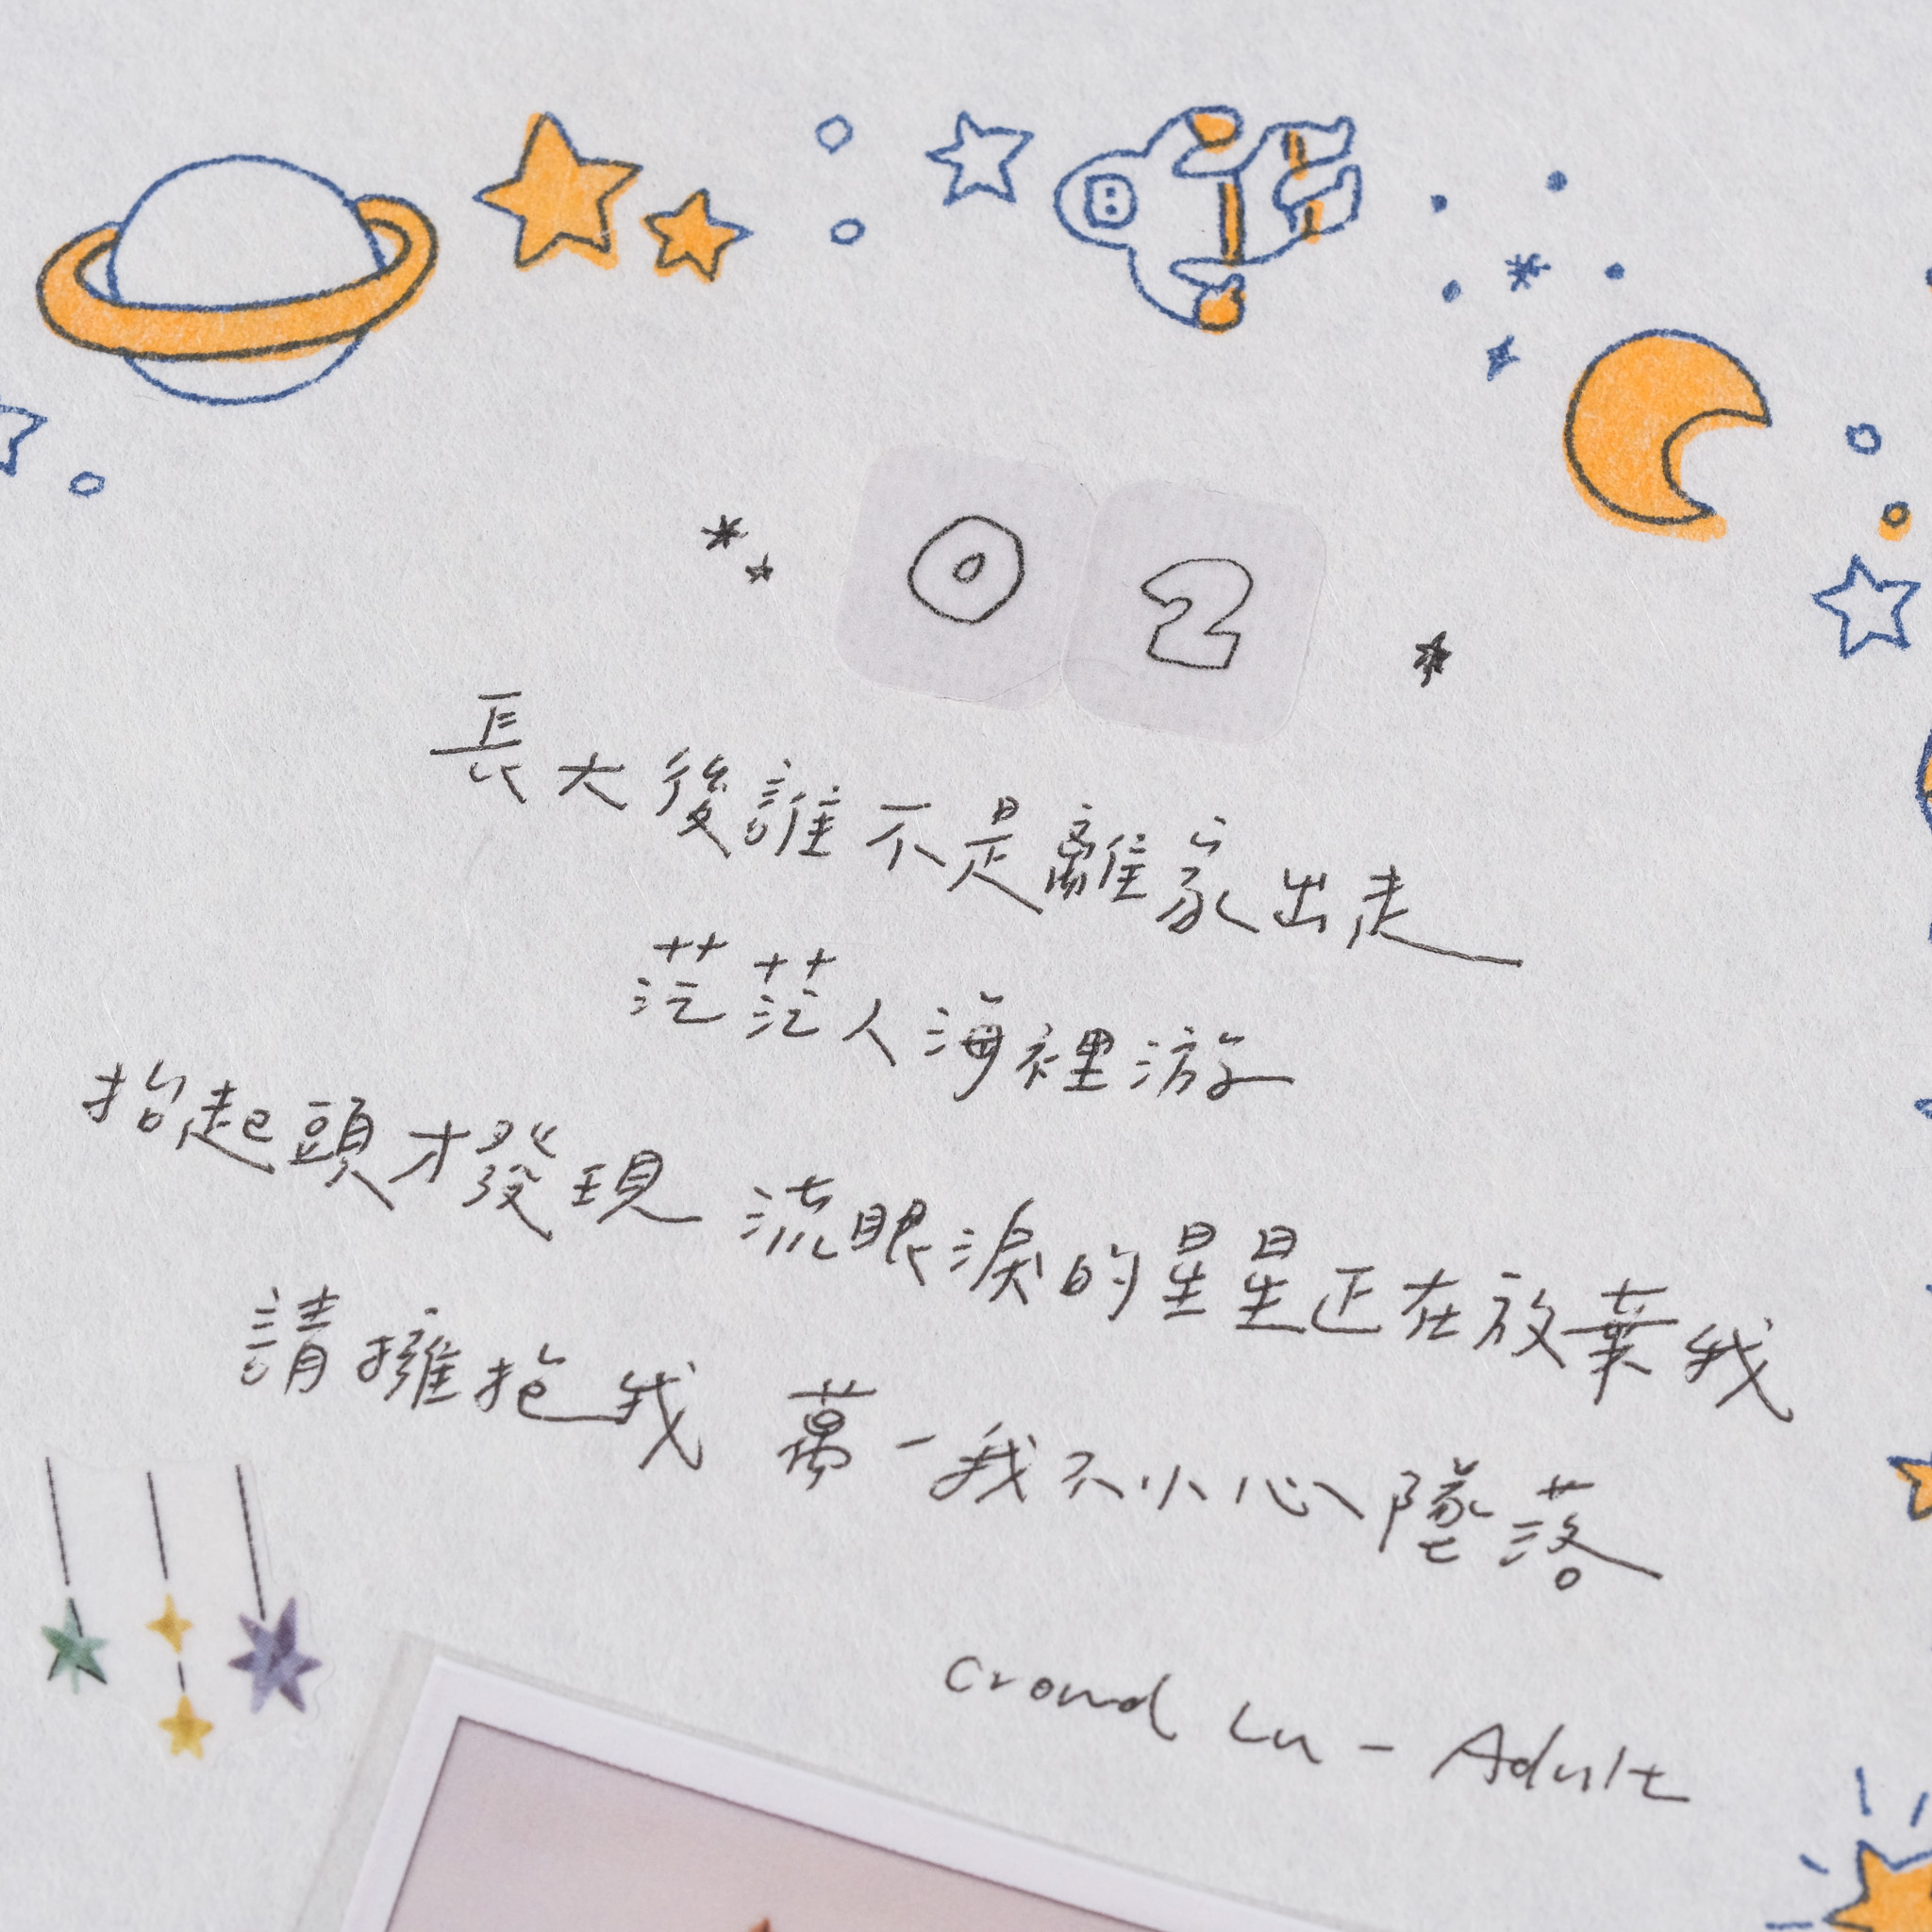 02
長大後誰不是離家出走
茫茫人海裡游
抬起頭才發現 流眼淚的星星正在放棄我
請擁抱我 萬一我不小心墜落
Crowd Lu - Adult